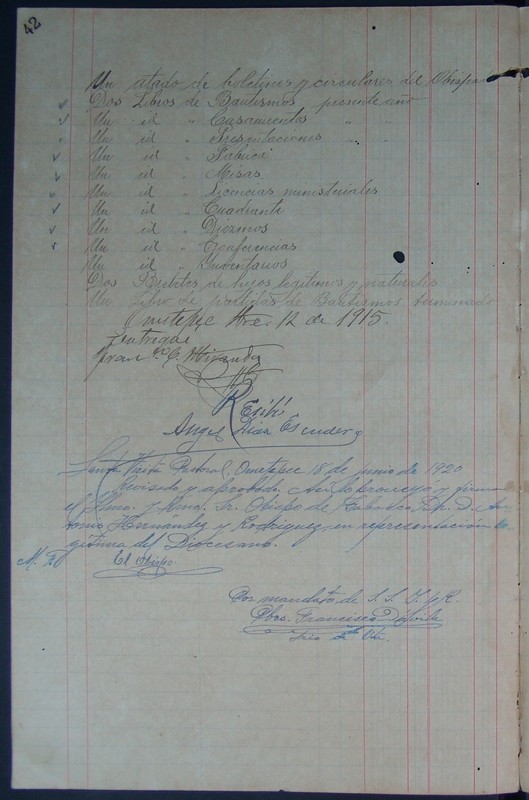 42
Un atado de boletines y circulares del Obispado
Dos Libros de Bautismos presente año
Un id " Casamientos " "
Un id " Presentaciones " "
Un id " Fabrica
Un id " Misas
Un id " Licencias ministeriales
Un id " Cuadrante
Un id " Diezmos
Un id " Conferencias
Un id " Inventarios
Dos de hijos legitimos y naturales
Un Libro de de Bautismos terminado
Ometepec 12 de 1915.
Entregué
Fran co C. Miranda
Recibí
Angel Escudero
Santa Visita Pastoral, Ometepec 18 de junio de 1920
Revisado y aprobado. Así lo proveyó y firma
el Ilmo. y Rmo. Sr. Obispo de Tabasco, D. An
tonio Hernandez y Rodriguez, en representación le
gitima del Diocesano.
El Obispo
Por mandato de S. S. I. y R.
Pbro. Francisco Dávila
Srio de Vta.